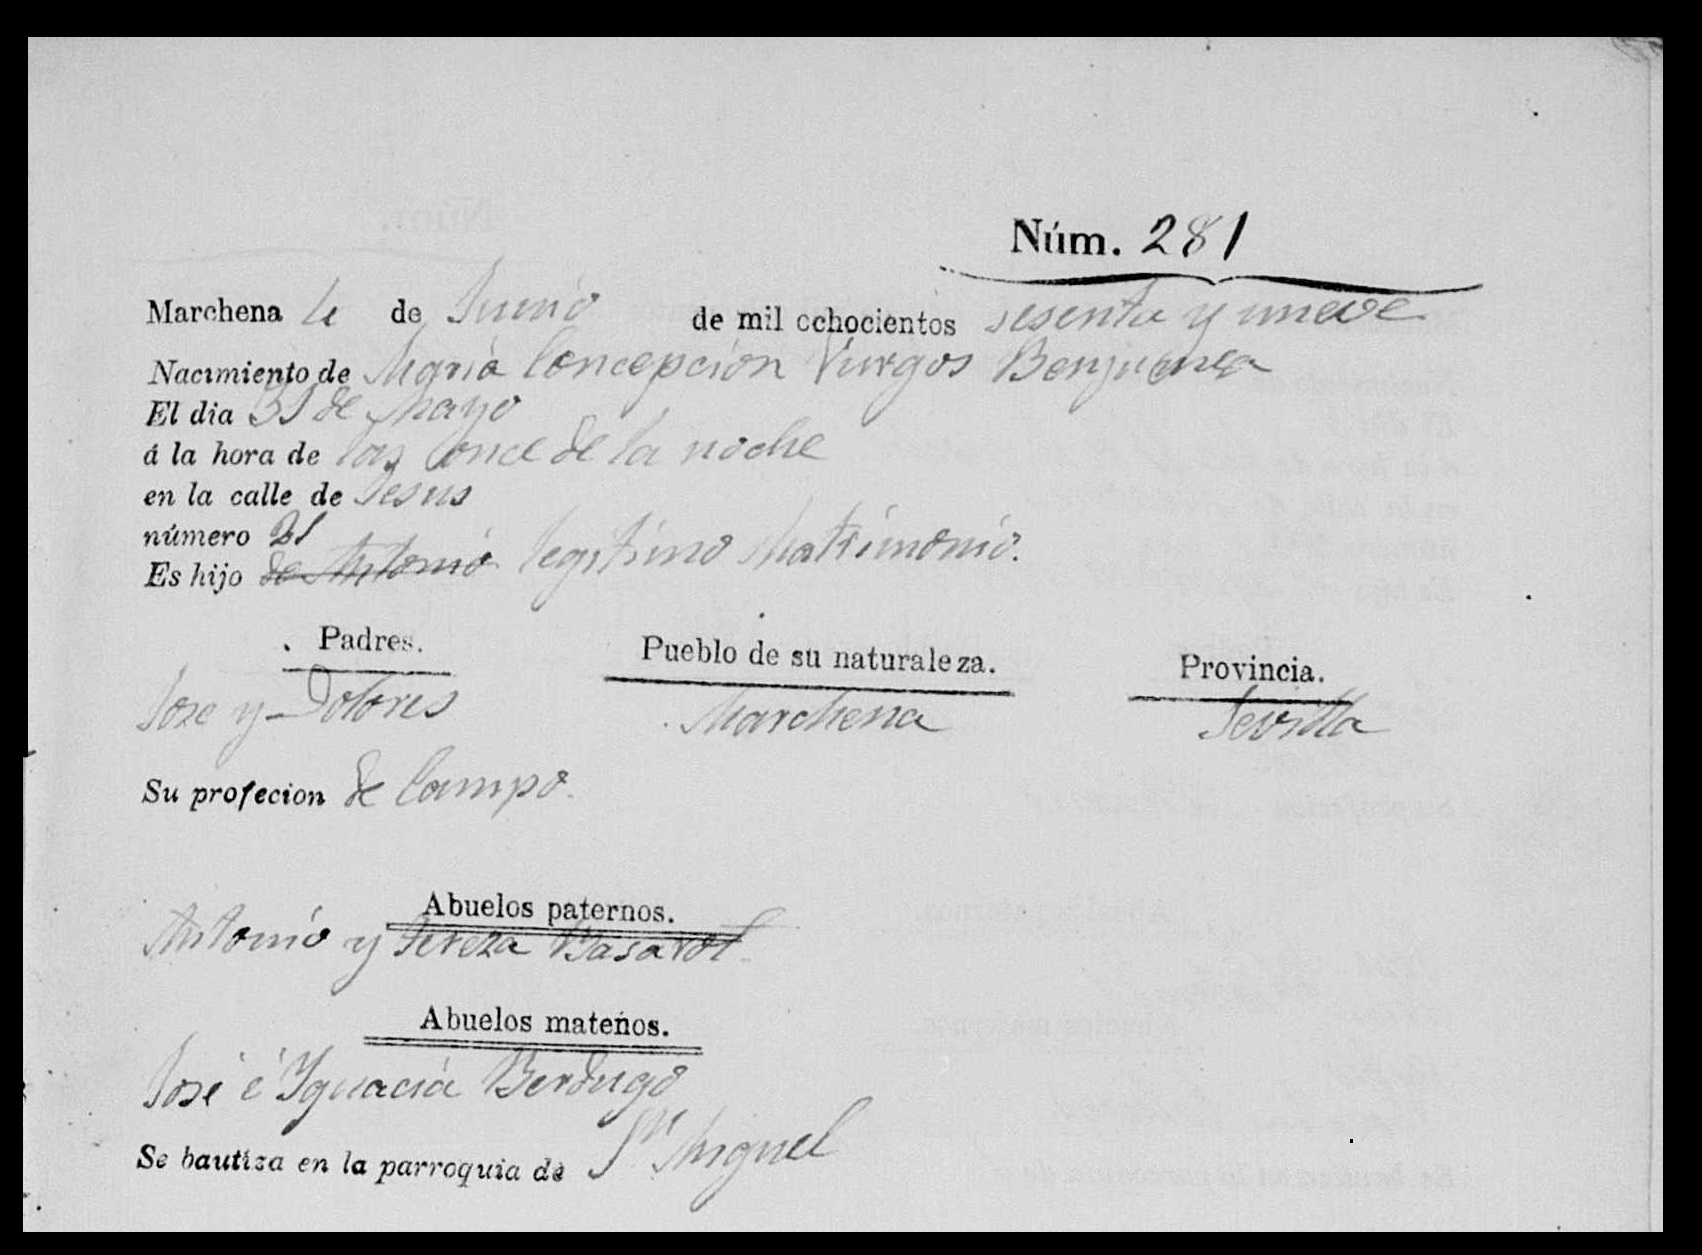 Núm. 281
Marchena 4 de Junio de mil ochocientos sesenta y nueve
Nacimiento de Maria Concepcion Vurgos Benjumea
El dia 31 de Mayo
á la hora de las once de la noche
en la calle de Jesus
número 21
Es hijo de Antonio legitimo Matrimonio.
Padres. Pueblo de su naturaleza. Provincia.
Jose y Dolores Marchena Sevilla
Su profecion de Campo.
Abuelos paternos.
Antonio y Tereza Basarol
Abuelos mateños.
José é Ygnacia Berdugo
Se bautiza en la parroquia de Sn Miguel